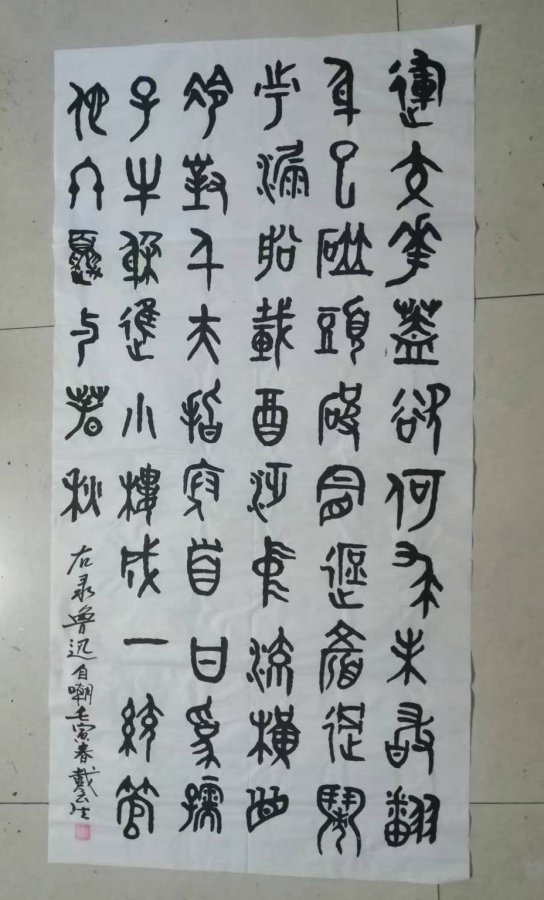 運交華蓋欲何求未敢翻
身已碰頭破帽遮顏過鬧
市漏船載酒泛中流橫眉
冷對千夫指俯首甘為孺
子牛躲進小樓成一統管
他冬夏與春秋
右录魯迅自嘲壬寅春戴云生